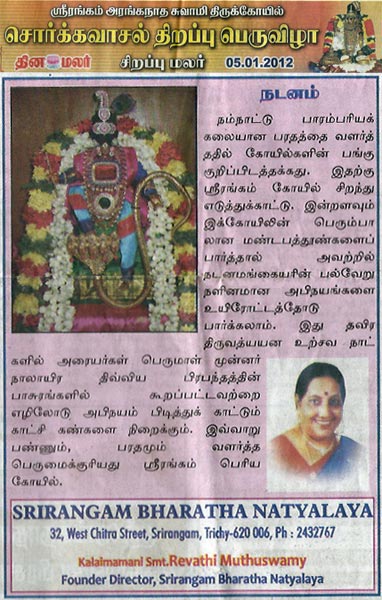 ஸ்ரீரங்கம் அரங்கநாத சுவாமி திருக்கோயில்
சொர்க்கவாசல் திறப்பு பெருவிழா
தினமலர் சிறப்பு மலர் 05.01.2012
நடனம்
நம்நாட்டு பாரம்பரியக்
கலையான பரதத்தை வளர்த்
ததில் கோயில்களின் பங்கு
குறிப்பிடத்தக்கது. இதற்கு
ஸ்ரீரங்கம் கோயில் சிறந்து
எடுத்துக்காட்டு. இன்றளவும்
இக்கோயிலின் பெரும்பா
லான மண்டபத்தூண்களைப்
பார்த்தால் அவற்றில்
நடனமங்கையரின் பல்வேறு
நளினமான அபிநயங்களை
உயிரோட்டத்தோடு
பார்க்கலாம். இது தவிர
திருவத்யயன உற்சவ நாட்
களில் அரையர்கள் பெருமாள் முன்னர்
நாலாயிர திவ்விய பிரபந்தத்தின்
பாசுரங்களில் கூறப்பட்டவற்றை
எழிலோடு அபிநயம் பிடித்துக் காட்டும்
காட்சி கண்களை நிறைக்கும். இவ்வாறு
பண்ணும், பரதமும் வளர்த்த
பெருமைக்குரியது ஸ்ரீரங்கம் பெரிய
கோயில்.
SRIRANGAM BHARATHA NATYALAYA
32, West Chitra Street, Srirangam, Trichy-620 006, Ph : 2432767
Kalaimamani Smt.Revathi Muthuswamy
Founder Director, Srirangam Bharatha Natyalaya